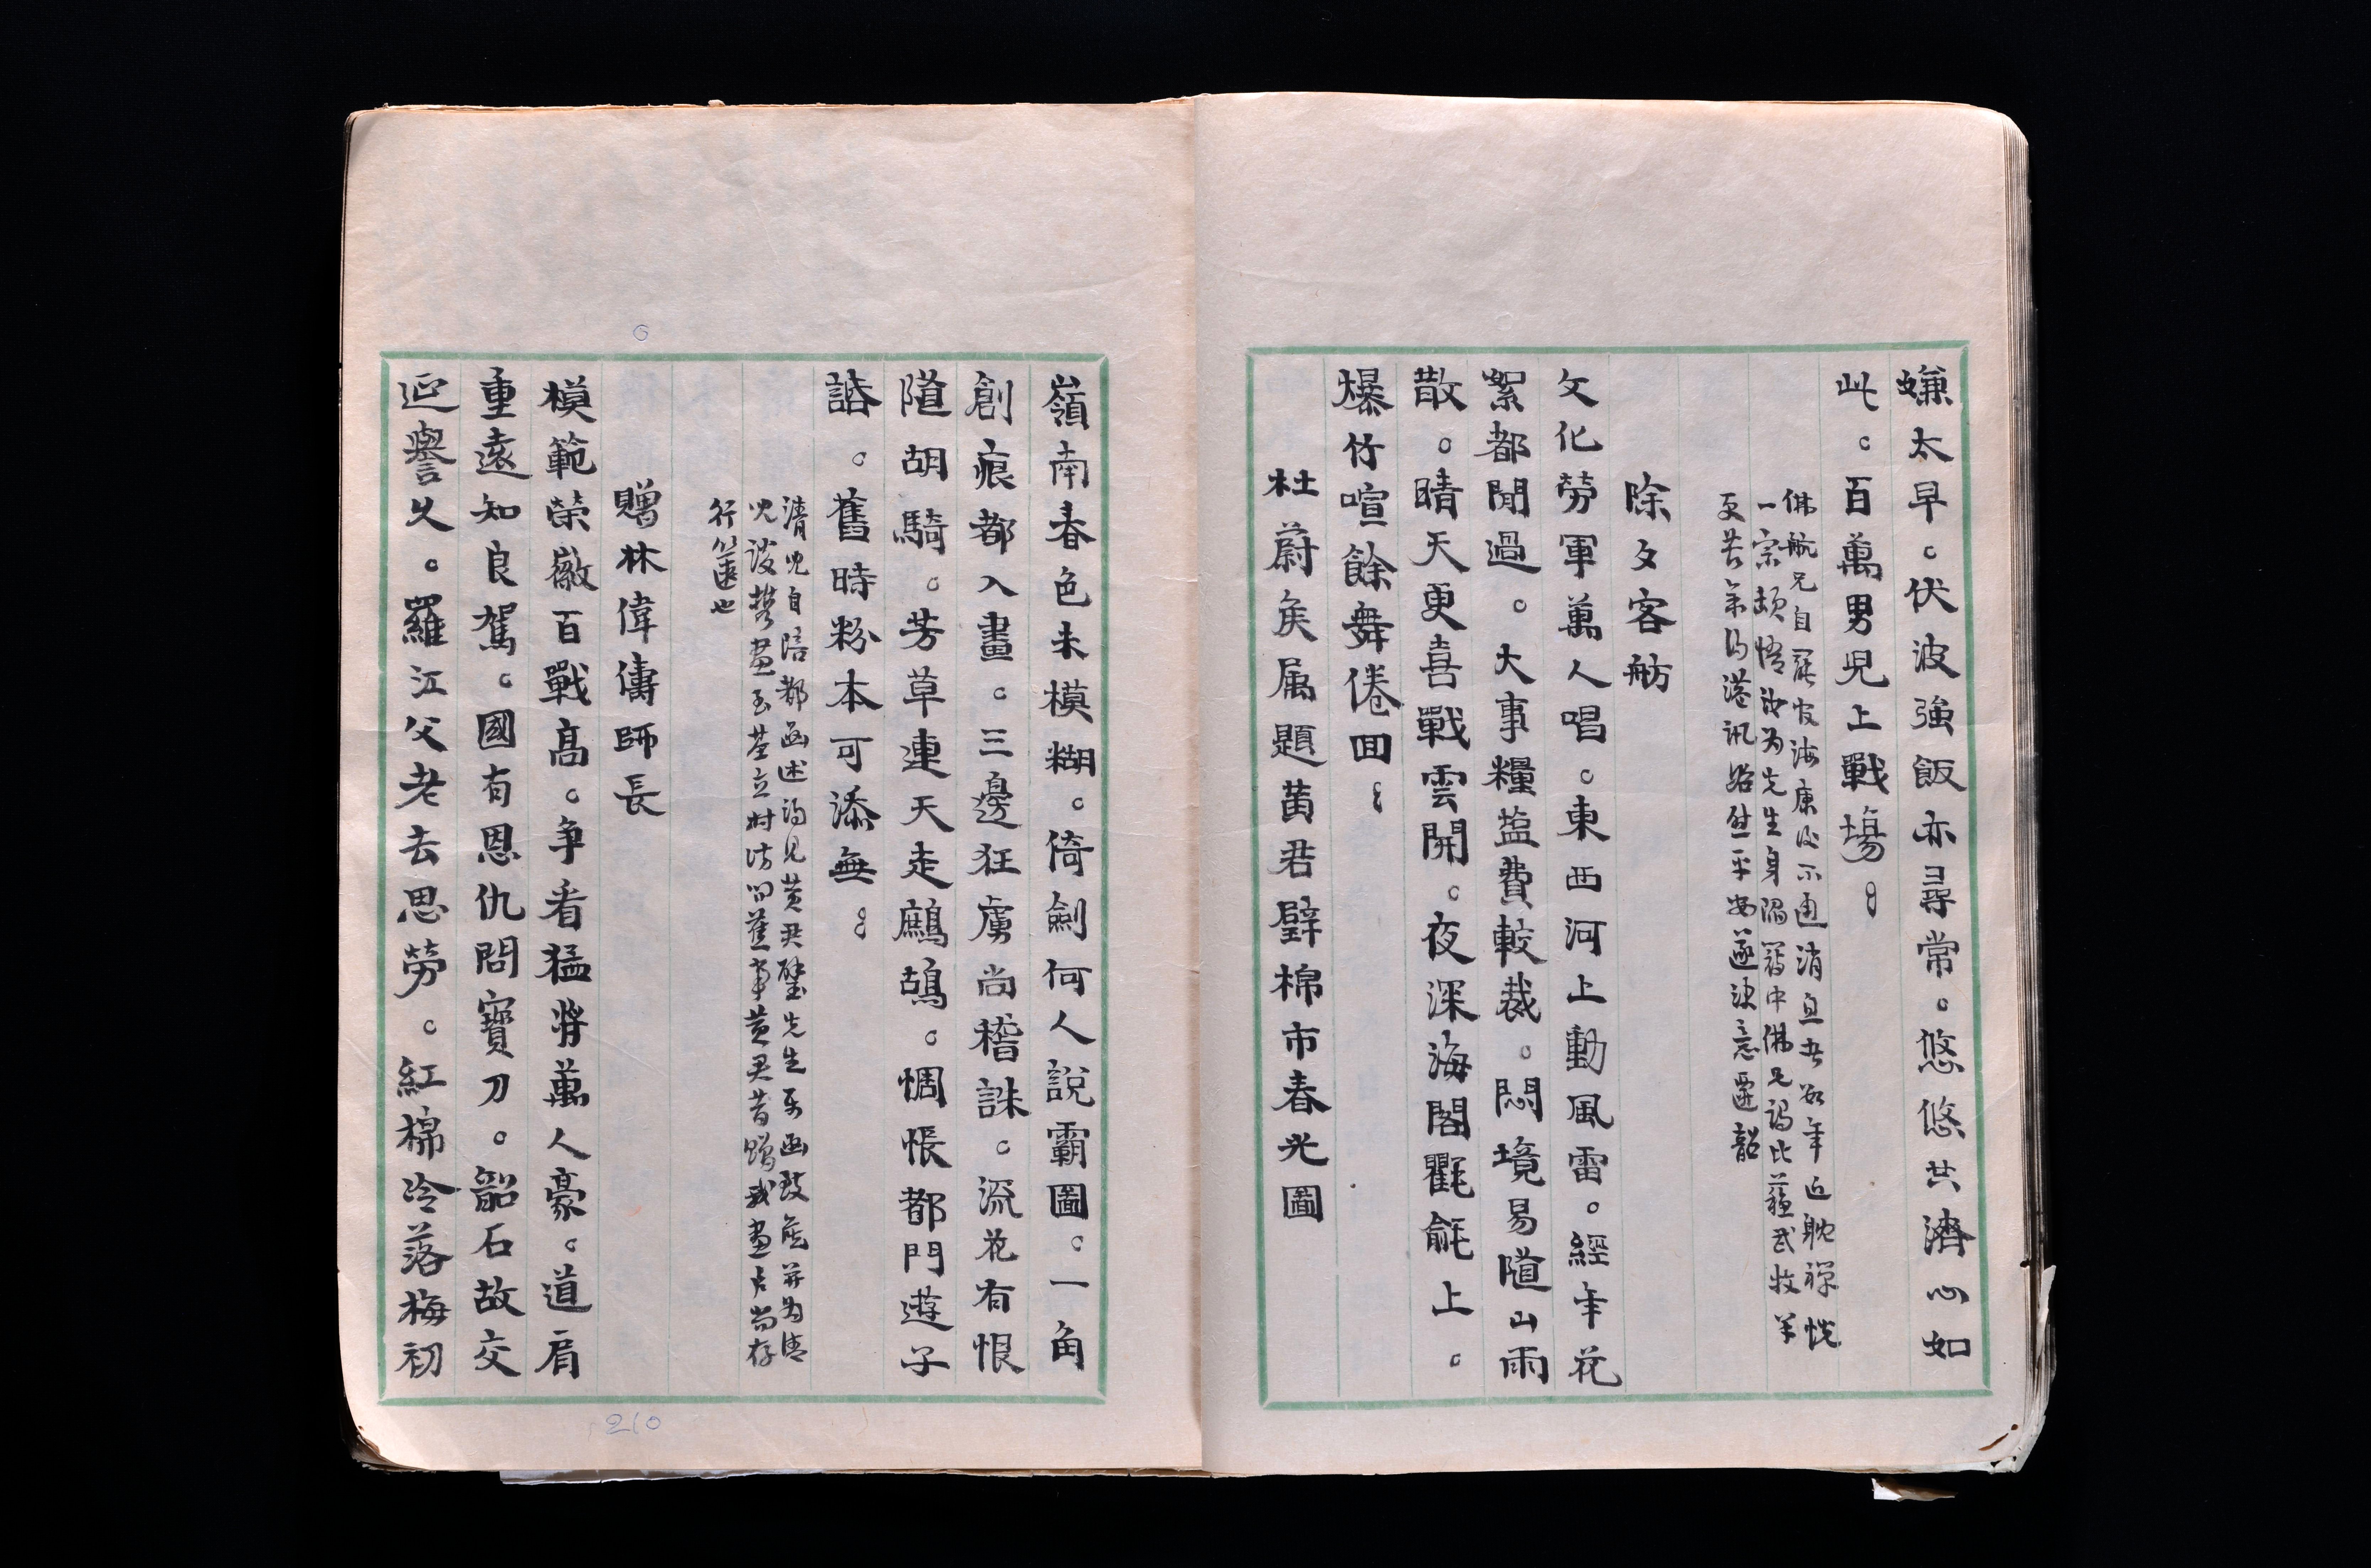 嫌太早。伏波強飯亦尋常。悠悠共濟心如
此。百萬男兒上戰場。
佛航兄自罷官海康後不通消息者數年近耽禪悅
一宗頓悟汝為先生身陷窮中佛兄謁比蘇武牧羊
更苦年得港訊始悉平安遂決意遷韶
除夕客舫
文化勞軍萬人唱。東西河上動風雷。經年花
絮都閒過。大事糧鹽費較裁。悶境易隨山雨
散。晴天更喜戰雲開。夜深海閣氍毹上。
爆竹喧餘舞倦回。
杜蔚矦屬題黃君璧棉市春光圖
嶺南春色未模糊。倚劍何人說霸圖。一角
創痕都入畫。三邊狂虜尚稽誅。流花有恨
隨胡騎。芳草連天走鷓鴣。惆悵都門遊子
諳。舊時粉本可添無。
清兒自陪都函述謁見黃君璧先生承函致矦并為清
兒談藝畫至荃立村访问舊事黃君昔贈我畫片尚存
行篋也
贈林偉儔師長
模範榮徽百戰高。爭看猛將萬人豪。道肩
重遠知良駕。國有恩仇問寶刀。韶石故交
迎譽父。羅江父老去思勞。紅棉冷落梅初
210